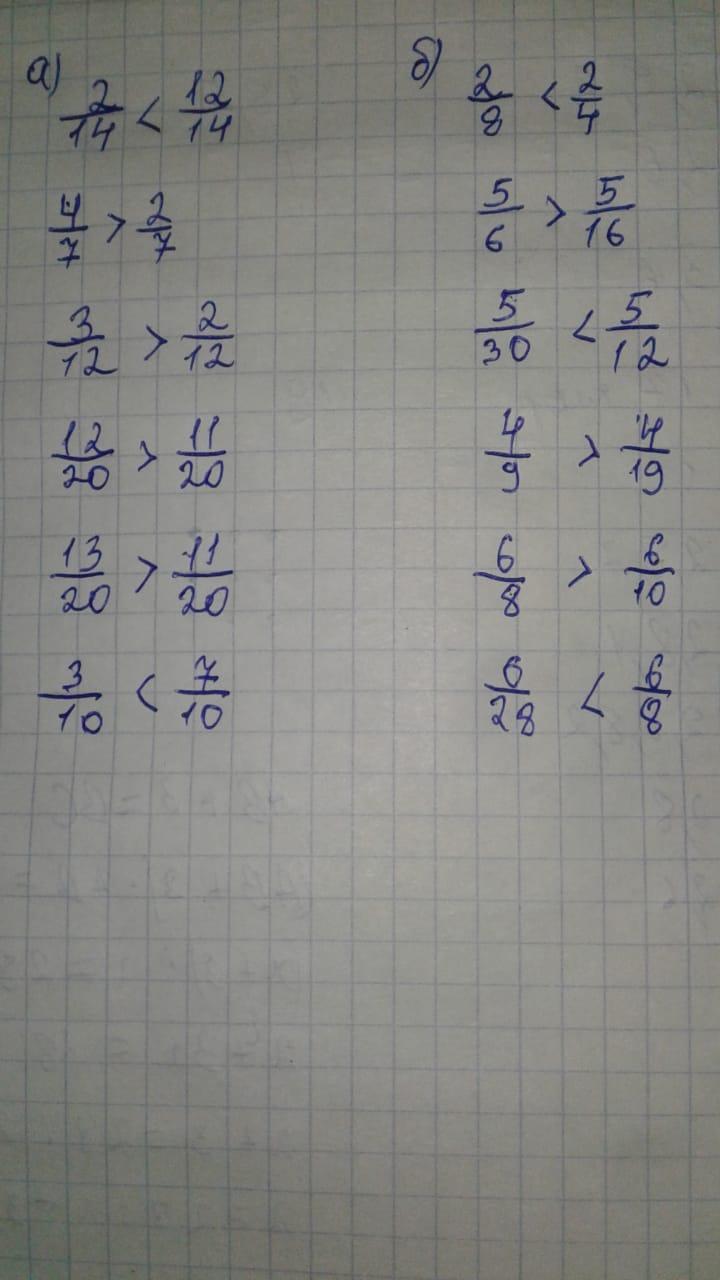 а)
2/14 < 12/14
4/7 > 2/7
3/12 > 2/12
12/20 > 11/20
13/20 > 11/20
3/10 < 7/10
б)
2/8 < 2/4
5/6 > 5/16
5/30 < 5/12
4/9 > 4/19
6/8 > 6/10
6/28 < 6/8